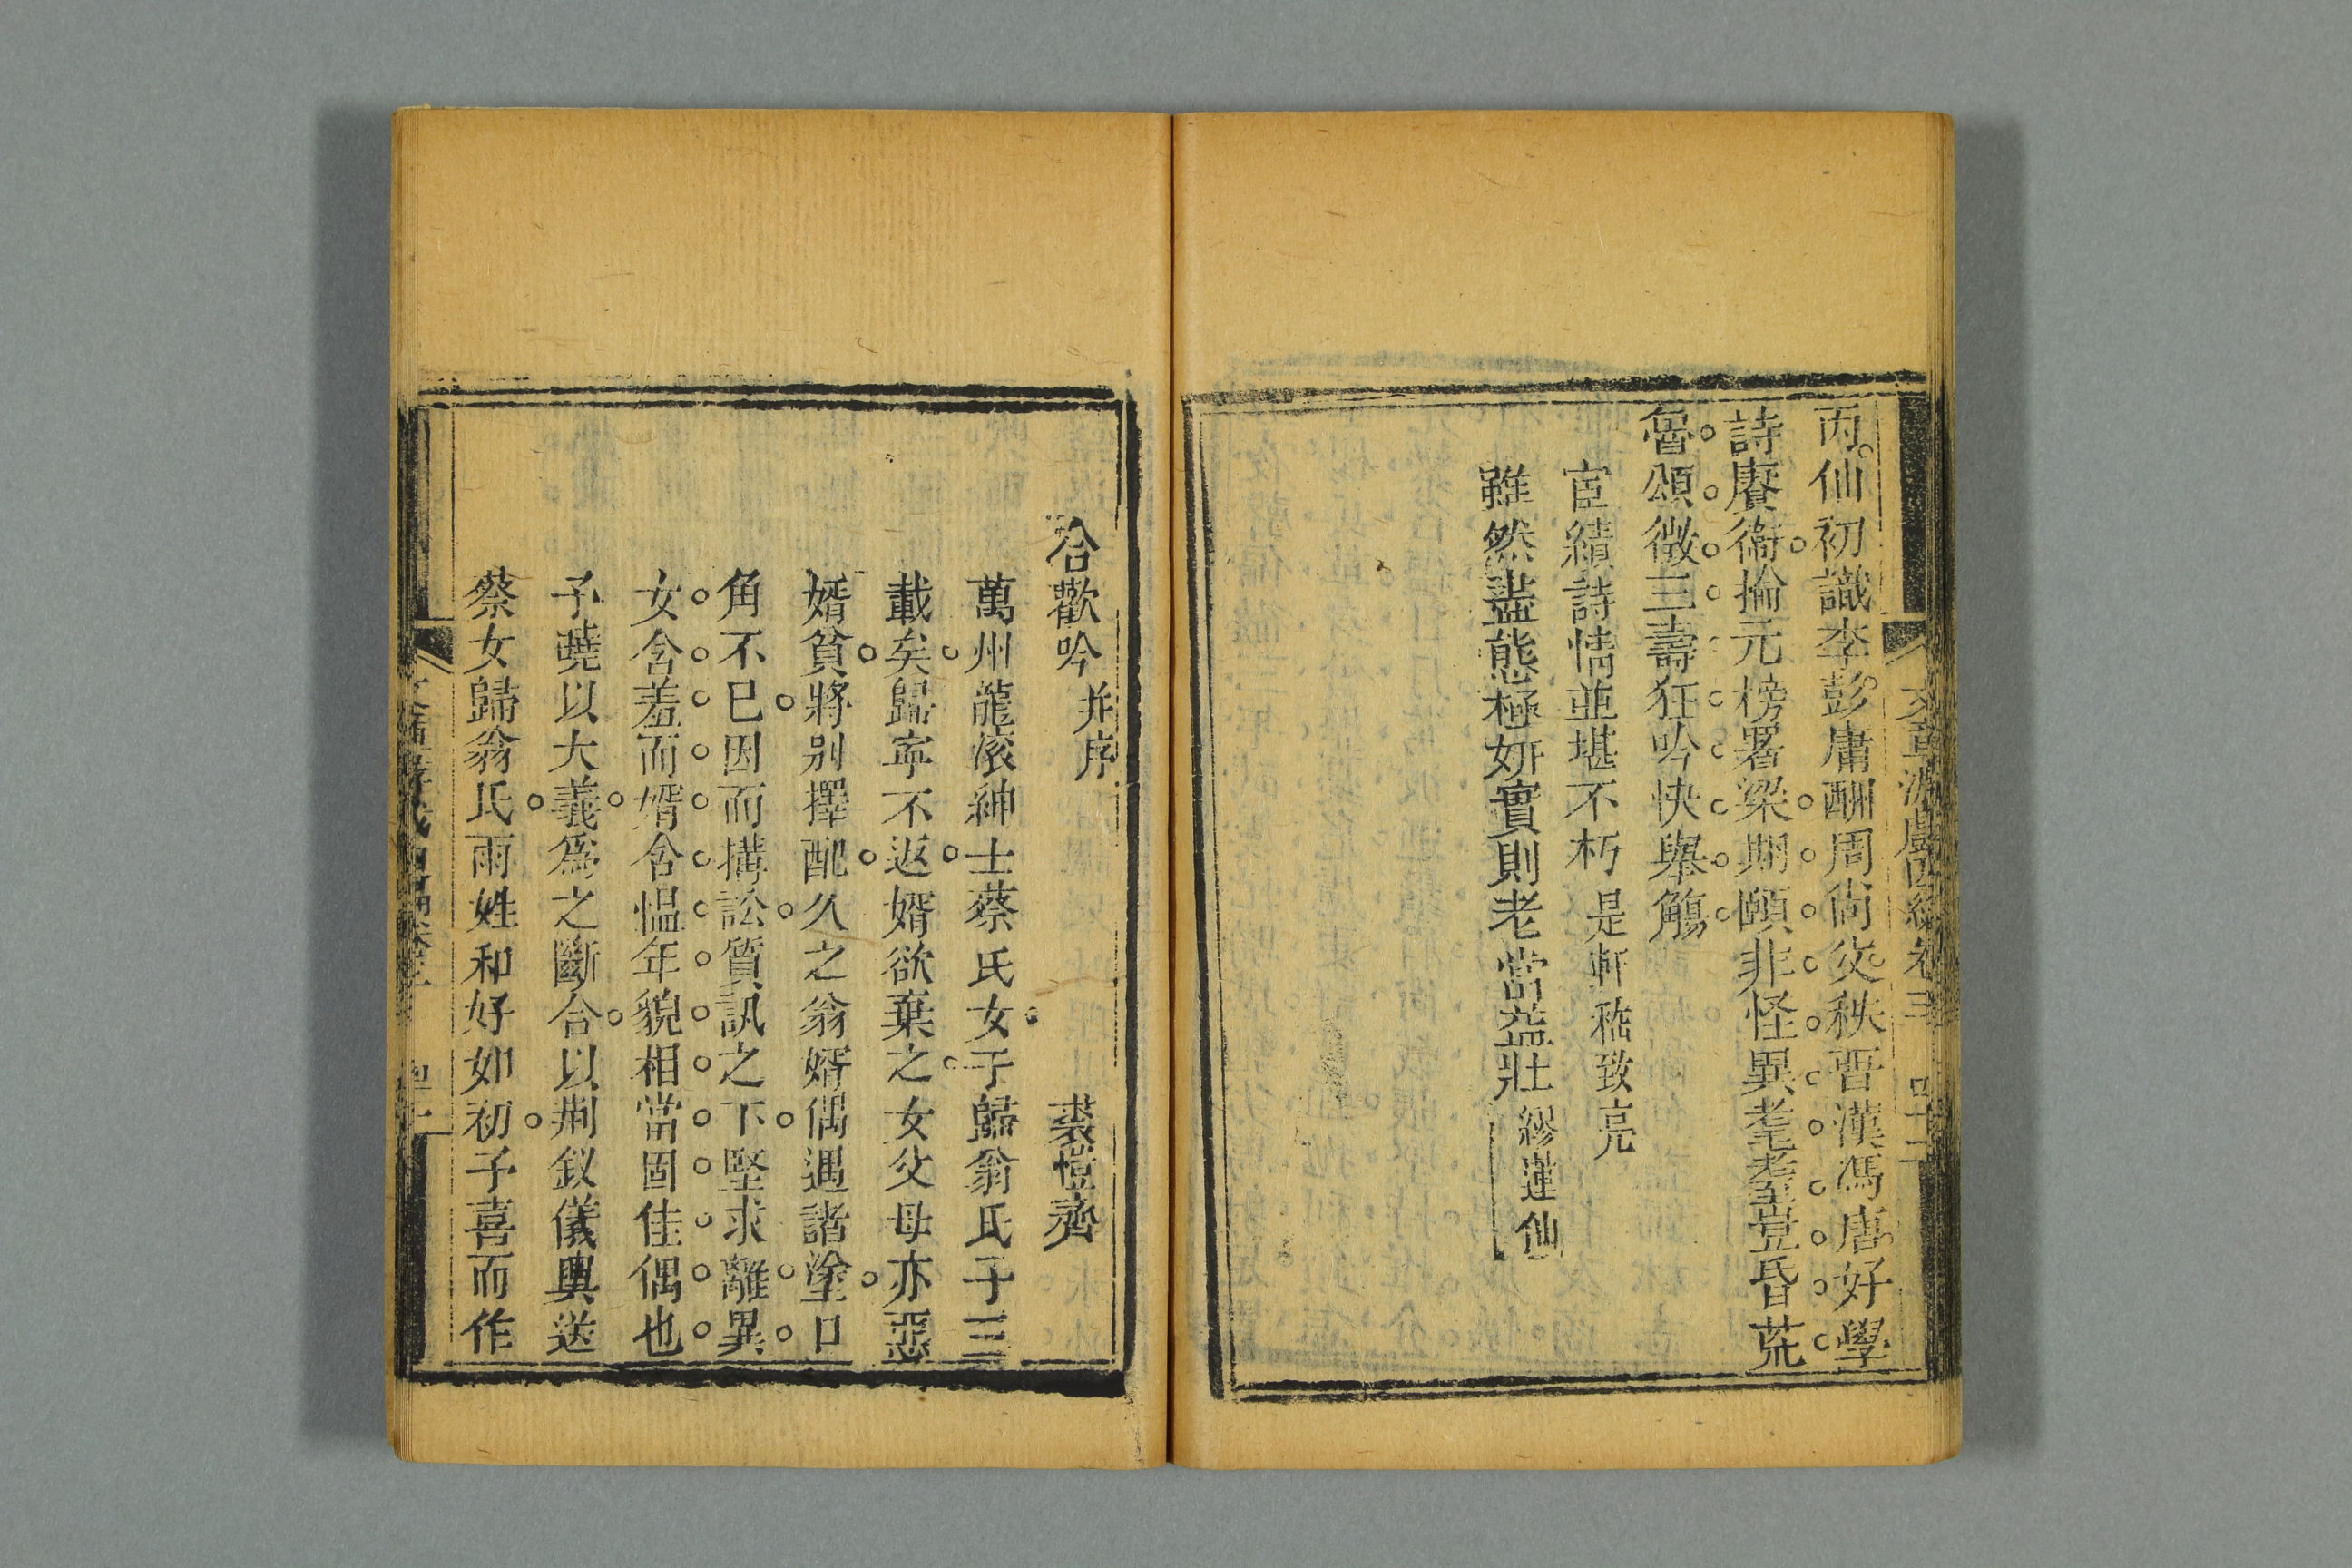 文章游戲四編卷三 四十二
丙仙初識李彭庸酬周尚父秩晋漢馮唐好學
詩賡衛掄元榜署梁期頤非怪異耄耋豈昏荒
魯頌徵三壽狂吟快舉觴
宦績詩情並堪不朽 是軒嵇致亮
雖然盡態極妍實則老當益壯 繆蓮仙
合歡吟 并序 裘愷齋
萬州龍滚紳士蔡氏女于歸翁氏子三
載矣歸寜不返婿欲棄之女父母亦惡
婿貧將别擇配久之翁婿偶遇諸塗口
角不已因而搆訟質訊之下堅求離異
女含羞而婿含愠年貌相當固佳偶也
予曉以大義爲之斷合以荆釵儀輿送
蔡女歸翁氏雨姓和好如初予喜而作